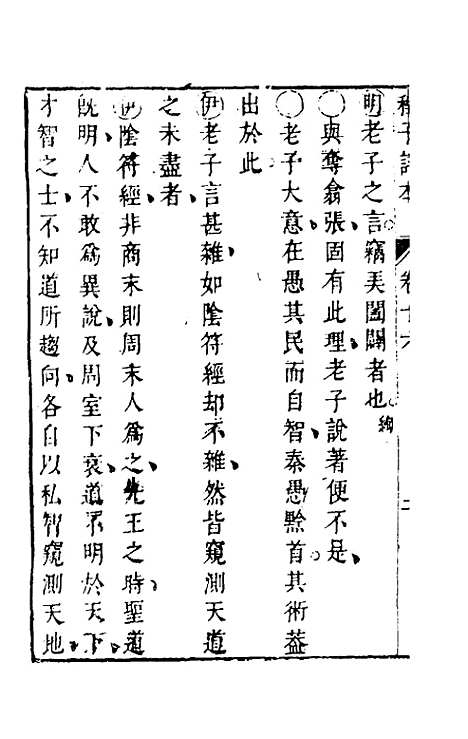 程子詳本 卷十六 二
明老子之言竊弄闔闢者也絢
與奪翕張固有此理老子說著便不是
老子大意在愚其民而自智秦愚黔首其術葢
出於此
伊老子言甚雜如陰符經却不雜然皆窺測天道
之未盡者
伊陰符經非商末則周末人爲之先王之時聖道
旣明人不敢爲異說及周室下衰道不明於天下
才智之士不知道所趨向各自以私智窺測天地